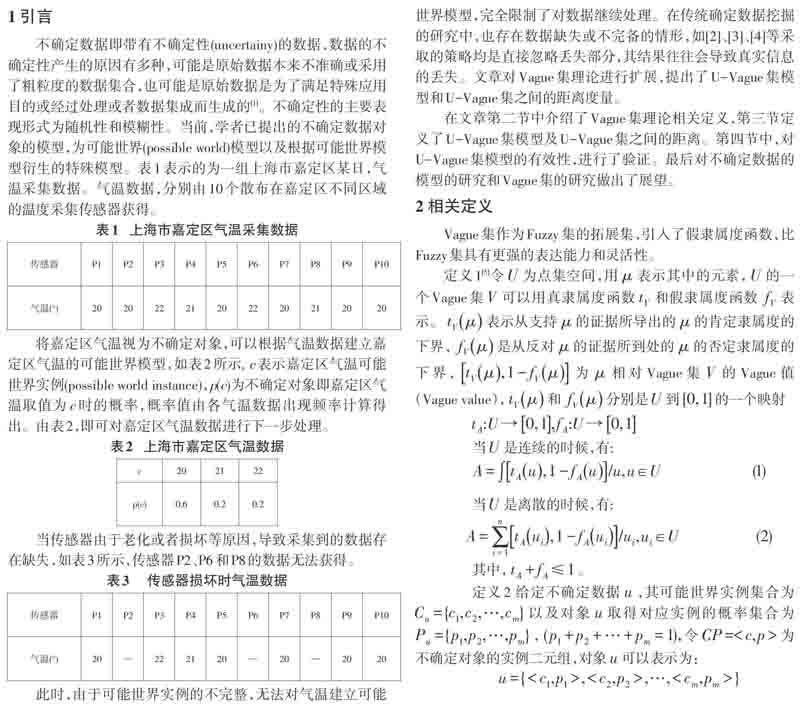 1 引言
不确定数据即带有不确定性(uncertainy)的数据,数据的不
确定性产生的原因有多种,可能是原始数据本来不准确或采用
了粗粒度的数据集合,也可能是原始数据是为了满足特殊应用
目的或经过处理或者数据集成而生成的[1]。不确定性的主要表
现形式为随机性和模糊性。当前,学者已提出的不确定数据对
象的模型,为可能世界(possible world)模型以及根据可能世界模
型衍生的特殊模型。表1表示的为一组上海市嘉定区某日,气
温采集数据。气温数据,分别由10个散布在嘉定区不同区域
的温度采集传感器获得。
表1 上海市嘉定区气温采集数据
传感器 P1 P2 P3 P4 P5 P6 P7 P8 P9 P10
气温(°) 20 20 22 21 20 22 20 21 20 20
将嘉定区气温视为不确定对象,可以根据气温数据建立嘉
定区气温的可能世界模型,如表2所示, c表示嘉定区气温可能
世界实例(possible world instance),p(c)为不确定对象即嘉定区气
温取值为c时的概率,概率值由各气温数据出现频率计算得
出。由表2,即可对嘉定区气温数据进行下一步处理。
表2 上海市嘉定区气温数据
c 20 21 22
p(c) 0.6 0.2 0.2
当传感器由于老化或者损坏等原因,导致采集到的数据存
在缺失,如表3所示,传感器P2、P6和P8的数据无法获得。
表3 传感器损坏时气温数据
传感器 P1 P2 P3 P4 P5 P6 P7 P8 P9 P10
气温(°) 20 — 22 21 20 — 20 — 20 20
此时,由于可能世界实例的不完整,无法对气温建立可能
世界模型,完全限制了对数据继续处理。在传统确定数据挖掘
的研究中,也存在数据缺失或不完备的情形,如[2]、[3]、[4]等采
取的策略均是直接忽略丢失部分,其结果往往会导致真实信息
的丢失。文章对Vague集理论进行扩展,提出了U-Vague集模
型和U-Vague集之间的距离度量。
在文章第二节中介绍了Vague集理论相关定义,第三节定
义了U-Vague集模型及U-Vague集之间的距离。第四节中,对
U-Vague集模型的有效性,进行了验证。最后对不确定数据的
模型的研究和Vague集的研究做出了展望。
2 相关定义
Vague集作为Fuzzy集的拓展集,引入了假隶属度函数,比
Fuzzy集具有更强的表达能力和灵活性。
定义1[5]令U为点集空间,用μ表示其中的元素, U的一
个Vague集V可以用真隶属度函数tV和假隶属度函数fV表
示。tV(μ)表示从支持μ的证据所导出的μ的肯定隶属度的
下界, fV(μ)是从反对μ的证据所到处的μ的否定隶属度的
下界, [tV(μ),1-fV(μ)]为μ相对Vague集V的Vague值
(Vague value), tV(μ)和fV(μ)分别是U到[0,1]的一个映射
tA:U→[0,1],fA:U→[0,1]
当U是连续的时候,有:
A=∫[tA(u),1-fA(u)]/u,u∈U (1)
当U是离散的时候,有:
A=∑_{i=1}^{n}[tA(ui),1-fA(ui)]/ui,ui∈U (2)
其中, tA+fA≤1。
定义2 给定不确定数据u ,其可能世界实例集合为
Cu={c1,c2,⋯,cm}以及对象u取得对应实例的概率集合为
Pu={p1,p2,⋯,pm} , (p1+p2+⋯+pm=1),令CP=<c,p>为
不确定对象的实例二元组,对象u可以表示为:
u={<c1,p1>,<c2,p2>,⋯,<cm,pm>}